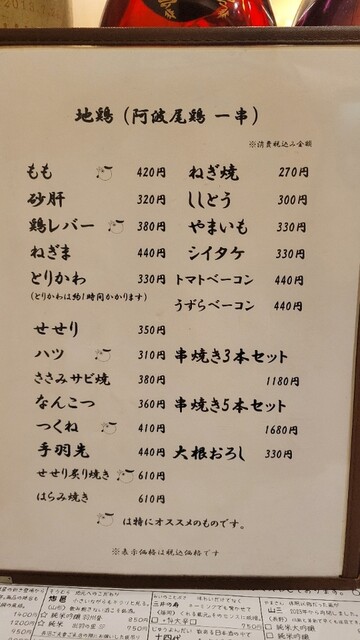 地鶏（阿波尾鶏 一串）
※消費税込み金額
もも 420円
砂肝 320円
鶏レバー 380円
ねぎま 440円
とりかわ 330円
(とりかわは約1時間かかります)
せせり 350円
ハツ 310円
ささみサビ焼 380円
なんこつ 360円
つくね 410円
手羽先 440円
せせり炙り焼き 610円
はらみ焼き 610円
ねぎ焼 270円
ししとう 300円
やまいも 330円
シイタケ 330円
トマトベーコン 440円
うずらベーコン 440円
串焼き3本セット
1180円
串焼き5本セット
1680円
大根おろし 330円
は特にオススメのものです。
※表示価格は税込価格です